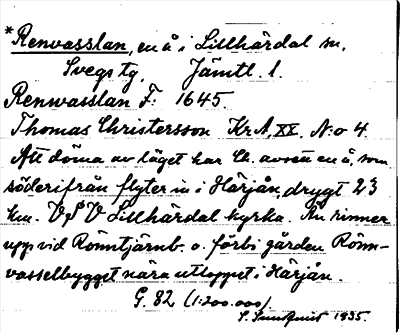 *Renvasslan, en å i Lillhärdal sn.
Svegs tg. Jämtl. l.
Renwasslan F. 1645.
Thomas Christersson Kr.A. XX. N:o 4.
Att döma av läget har Ch. avsett en å, som
söderifrån flyter in i Härjån, drygt 23
km. VSV Lillhärdal kyrka. Ån rinner
upp vid Rönntjärnb. o. förbi gården Rönn-
vasselbygget nära utloppet i Härjån.
G. 82 (1:200.000).
S. Lundquist 1935.